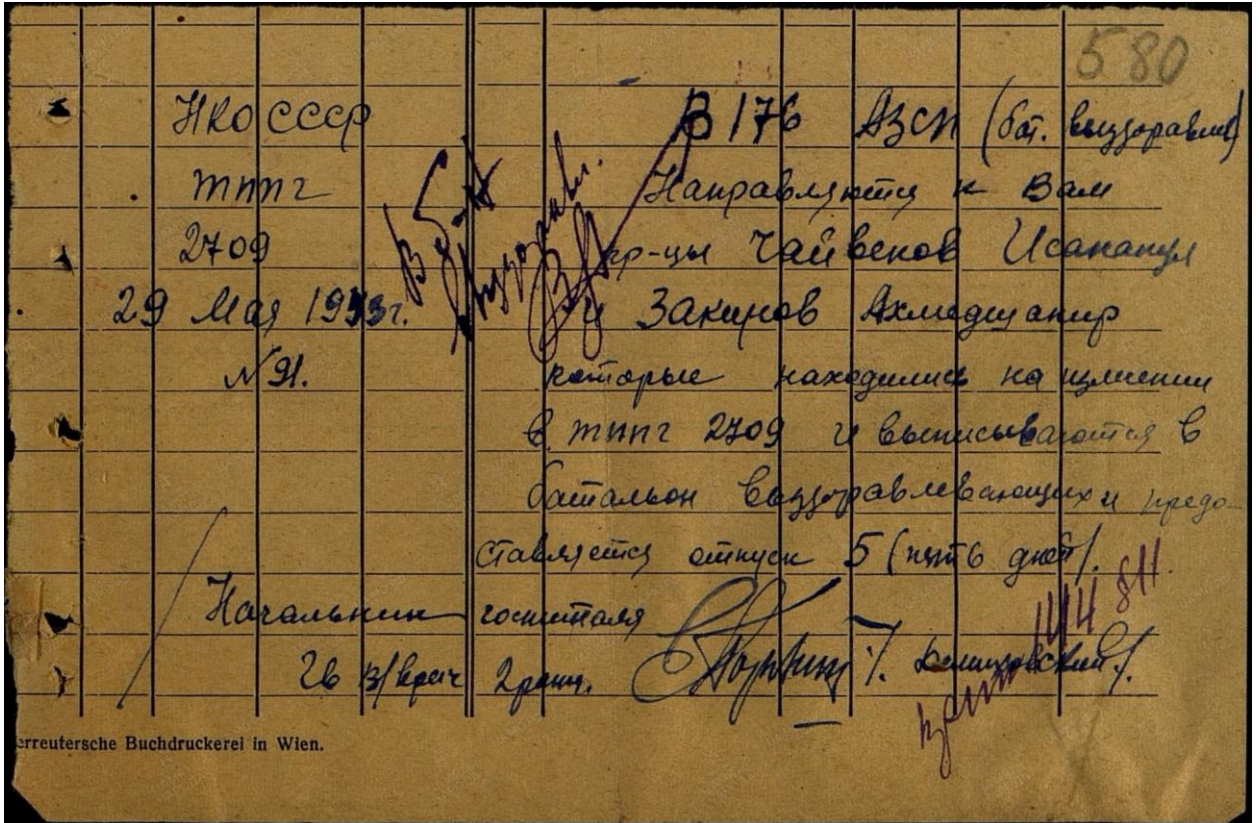 580
НКО СССР
ТППГ
2709
29 Мая 1943г.
№ 91.
В 176 АЗСП (бат. выздоравлив)
Направляются к Вам
кр-цы Чайбеков
и Закиров
которые находились на излечении
в ТППГ 2709 и выписываются в
батальон выздоравлевающих и предо-
ставляется отпуск 5 (пять дней).
Начальник госпиталя
в/врач 2 ранг.
erreutersche Buchdruckerei in Wien.